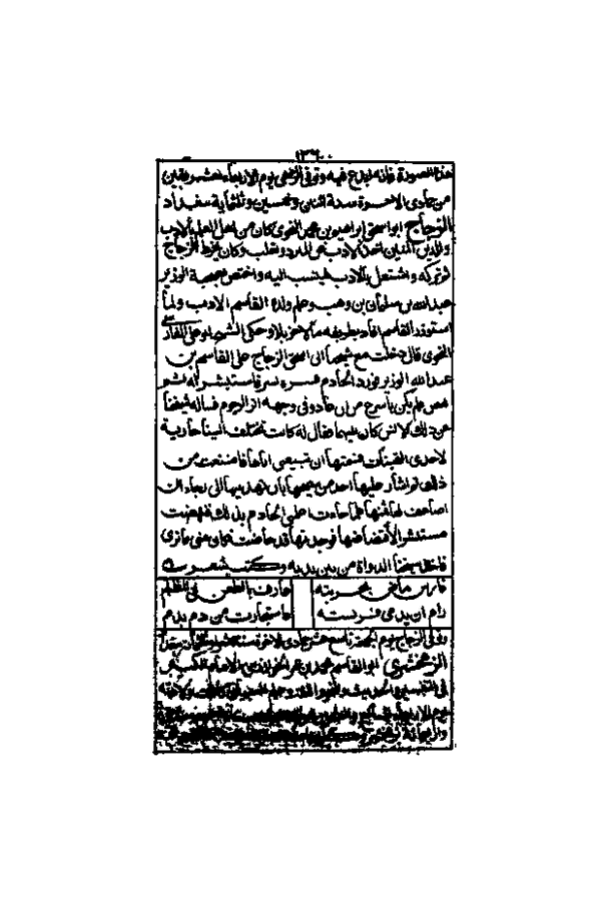 ١٣٦
هذا المصورة فانه ابدع فيه وتوفى الرضى يوم الاربعاء لعشر بقين
من جمادى الاخرة سنة اثنتى وخمسين وثلثماية ببغداد
الزجاج ابو اسحق ابراهيم بن محمد النحوى كان من اهل العلم بالادب
والدين المتين اخذ الادب عن المبرد وثعلب وكان يخرط الزجاج
ثم تركه واشتغل بالادب فنسب اليه واختص بصحبة الوزير
عبيد الله بن سليمان بن وهب وعلم ولده القاسم الادب ولما
استوزر القاسم افاد بطريقه مالا جزيلا وحكى الشيخ ابو على الفارسى
النحوى قال دخلت مع شيخنا ابى اسحق الزجاج على القاسم بن
عبد الله الوزير فورد الخادم فسره بسر فاستبشر له ثم
نهض فلم يكن باسرع من ان عاد وفى وجهه اثر الوجوم فساله شيخنا
عن ذلك لانس كان بينهما فقال له كانت تختلف الينا جارية
لاحدى القينات فسمتها ان تبيعنى اياها فامتنعت من
ذلك ثم اشار عليها احد من ينصحها بان تهديها الى رجاء ان
اضاعف لها ثمنها فلما جاءت اعلمنى الخادم بذلك فنهضت
مستبشرا لافتضاضها فوجدتها قد حاضت فكان منى ما ترى
فاخذ شيخنا الدواة من بين يديه وكتب شعر
فارس ماض بحربته عارف بالطعن فى الظلم
رام ان يدمى فريسته فاستجارت من دم بدم
وتوفى الزجاج يوم الجمعة تاسع عشر جمادى الاخرة سنة عشر وثلثمائة ببغداد
الزمخشرى ابو القاسم محمود بن عمر الخوارزمى الامام الكبير
فى التفسير والحديث والنحو واللغة وعلم البيان وولادته
يوم الاربعاء
واربعمائة بزمخشر